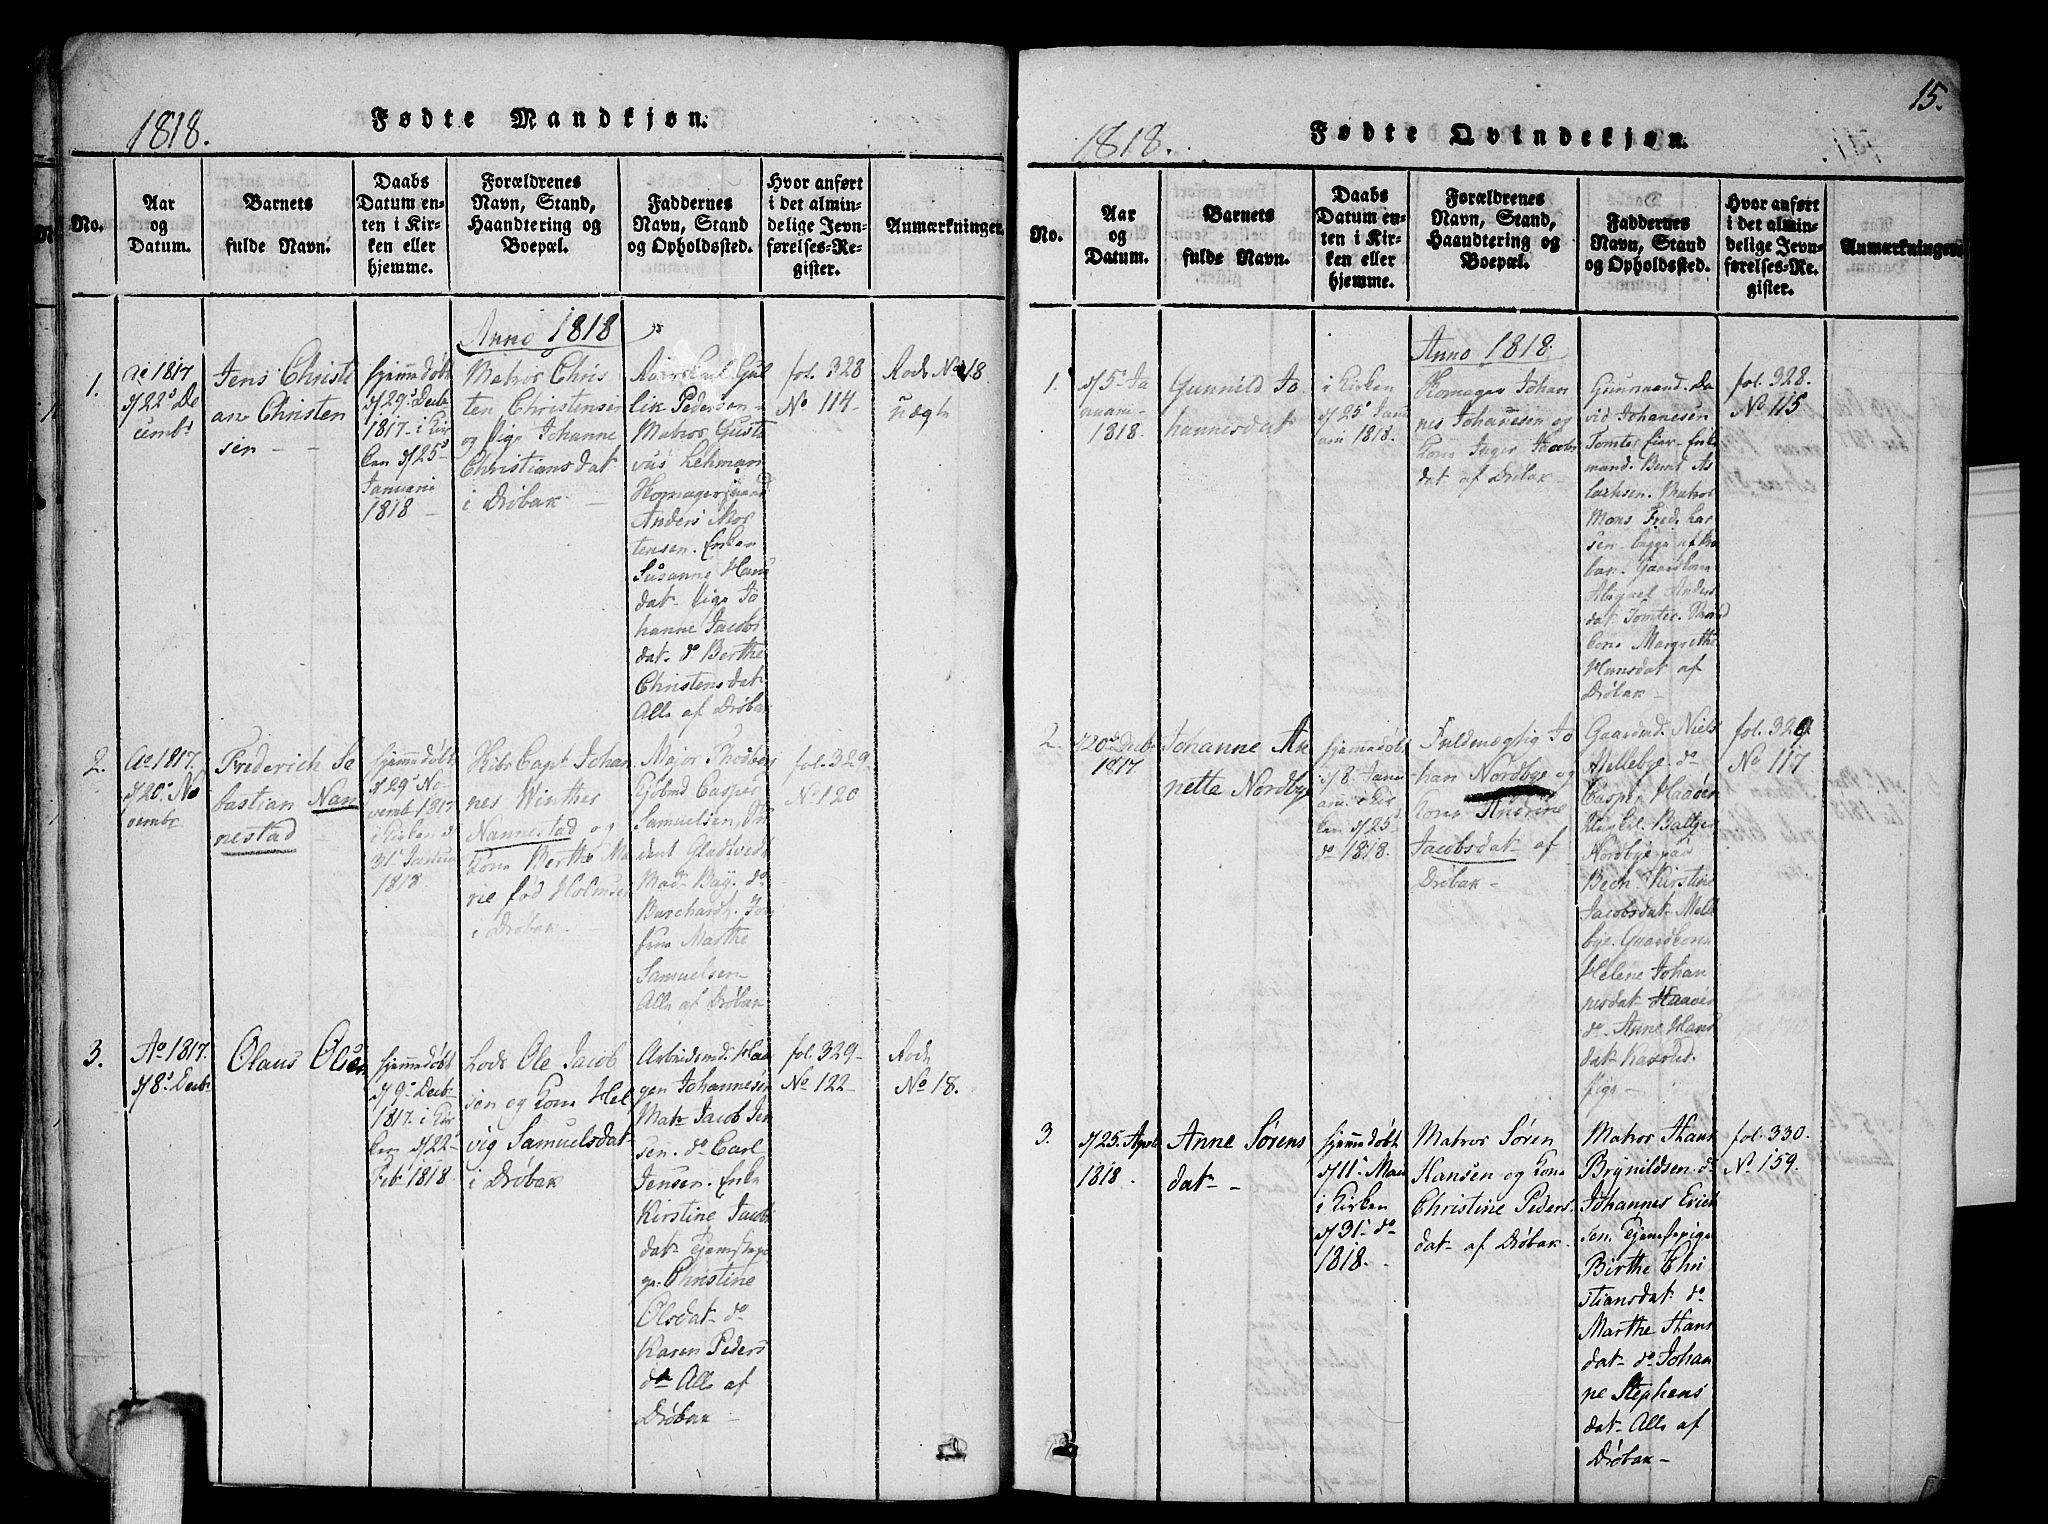 1818.
Fødte Mandkjøn.
No.
Aar
og
Datum.
Barnets
fulde Navn.
Daabs
Datum en-
ten i Kir-
ken eller
hjemme.
Forældrenes
Navn, Stand,
Haandtering og
Boepæl.
Faddernes
Navn, Stand
og Opholdssted.
Hvor anført
i det almin-
delige Jevn-
førelses-Re-
gister.
Anmærkninger.
Anno 1818
1.
Ao 1817
d/22de De
cembr
Jens Christi
an Christen
sen
hjemmedøbt
d/29de Decbr
1817 i Kir
ken d/25de
Januari
1818
Matros Chris
ten Christensen
og Pige Johanne
Christiansdat
i Drøbak
Gul
lik Pedersen
Matros Gusta
vus Lehman
Anders Mor
tensen. Enken
Susanne Hans
dat. Pige Jo
hanne Jacobs
dat. do Berthe
Christensdat
Alle af Drøbak
fol. 328
No 114
Rode No 18
uægte
2.
Ao 1817.
d/20de No
vembr
Frederich Se
bastian Nan
nestad
hjemmedøbt
d/29de No
vembr 1817
i Kirken d
31te Janua
1818
Skibs Capt Johan
nes Winther
Nannestad og
Kone Berthe Ma
rie fød Holmsen
i Drøbak
Major
Casper
Samuelsen,
Mad. Bay. do
Burchardt. Jom
fru Marthe
Samuelsen
Alle af Drøbak
fol. 329
No 120
3.
Ao 1817.
d/8de Decbr
Olaus Olsen
hjemmedøbt
d/9de Decbr
1817. i Kir
ken d/22de
Feb. 1818
Lods Ole Jacob
sen og Kone Hel
vig Samuelsdat
i Drøbak
Arbeidsmd. Haa
gen Johannesen
Matr Jacob Jen
sen. do Carl
Jensen. Enke
Kirstine Jacobs
dat. Tjenestepi
ge Christine
Olsdat. do
Karen Peders
da Alle af
Drøbak
fol. 329
No 122
Rode
No 18.
15.
1818.
Fødte Qvindekjøn.
No.
Aar
og
Datum.
Barnets
fulde Navn.
Daabs
Datum en-
ten i Kir-
ken eller
hjemme.
Forældrenes
Navn, Stand,
Haandtering og
Boepæl.
Faddernes
Navn, Stand
og Opholdssted.
Hvor anført
i det almin-
delige Jevn-
førelses-Re-
gister.
Anmærkninger
Anno 1818
1.
d/5te Ja
nuarii
1818
Gunnild Jo
hannesdat
i Kirken
d/25de Janu
arii 1818.
Johan
nes Johanesen og
Kone Inger Jacobs
dat af Drøbak
Gaardmand. Da
vid Johanesen
Tomter Eier. Enke
mand. Bernt As
lachsen. Matros
Mons Fred. Lar
sen begge af Drø
bak. Gaardkone
Abigael Anders
dat Tomter.
Kone Margrethe
Hansdat af
Drøbak
fol. 328.
No 115
2.
d/20de Decbr
1817
Johanne An
nette Nordbye
hjemmedøbt
d/8. Janu
arii i Kir
ken d/25de
do 1818.
Fuldmægtig Jo
han Nordbye og
Kone Andrine
Jacobsdat af
Drøbak
Gaardmd. Niels
Mellebye. do
Casper Haaver
Baltzer
Nordbye paa
Bech. Kirstine
Jacobsdat Melle
bye. Gaardkone
Helene Johan
nesdat Haaver
do Anne Hans
dat
Pige
fol. 329
No 117
3.
d/25. April
1818
Anne Sørens
dat
hjemmedøbt
d/11te Mai
i Kirken
d/31te do
1818.
Matros Søren
Hansen og Kone
Christine Peders
dat af Drøbak
Matros Hans
Brynildsen. do
Johannes Erich
sen. Tjenestepige
Birthe Chri
stiansdat do
Marthe Hans
dat do Johan
ne Stephens
dat. Alle af
Drøbak
fol. 330.
No 159.